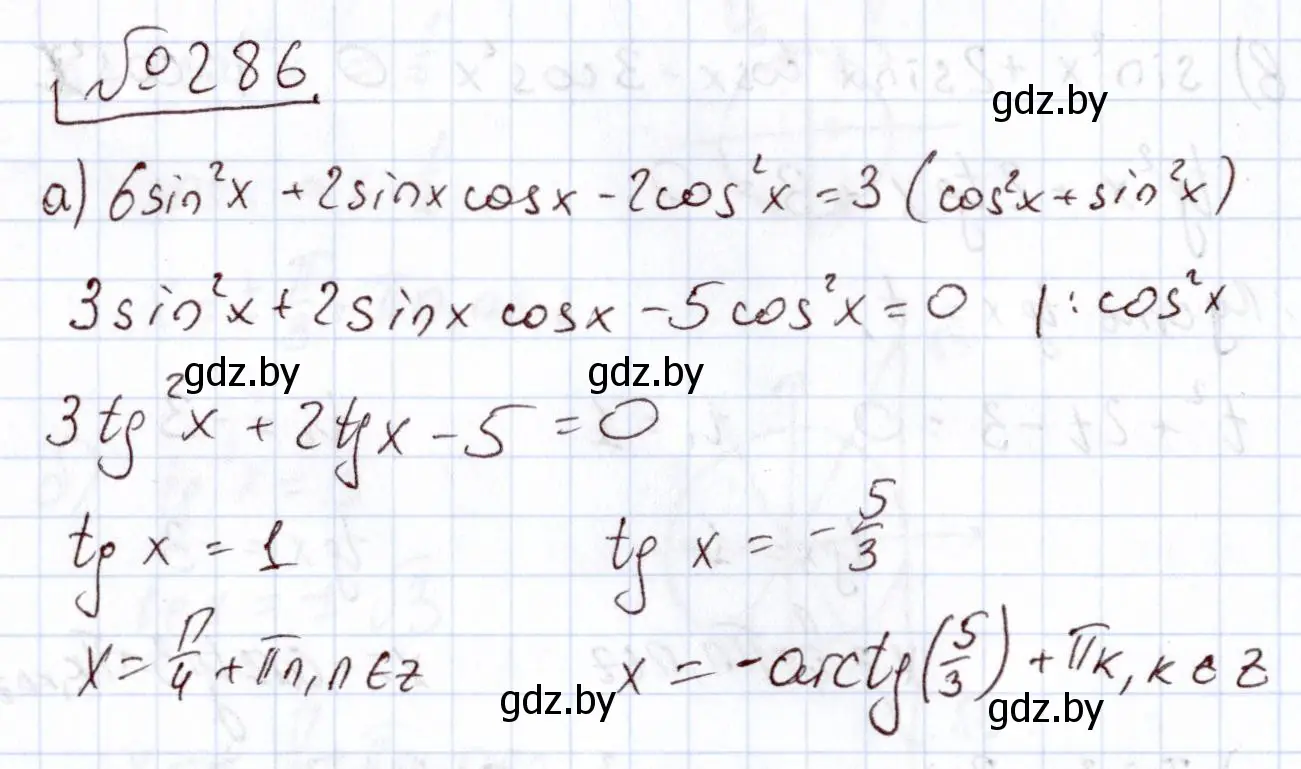 №286
gdz.by
а) 6sin²x + 2sinx cosx - 2cos²x = 3 (cos²x + sin²x)
3sin²x + 2sinx cosx - 5cos²x = 0 |: cos²x
gdz.by gdz.by
3tg²x + 2tgx - 5 = 0
tg x = 1 tg x = - 5/3
x = π/4 + πn, n ∈ z x = -arctg(5/3) + πк, к ∈ z
gdz.by gdz.by